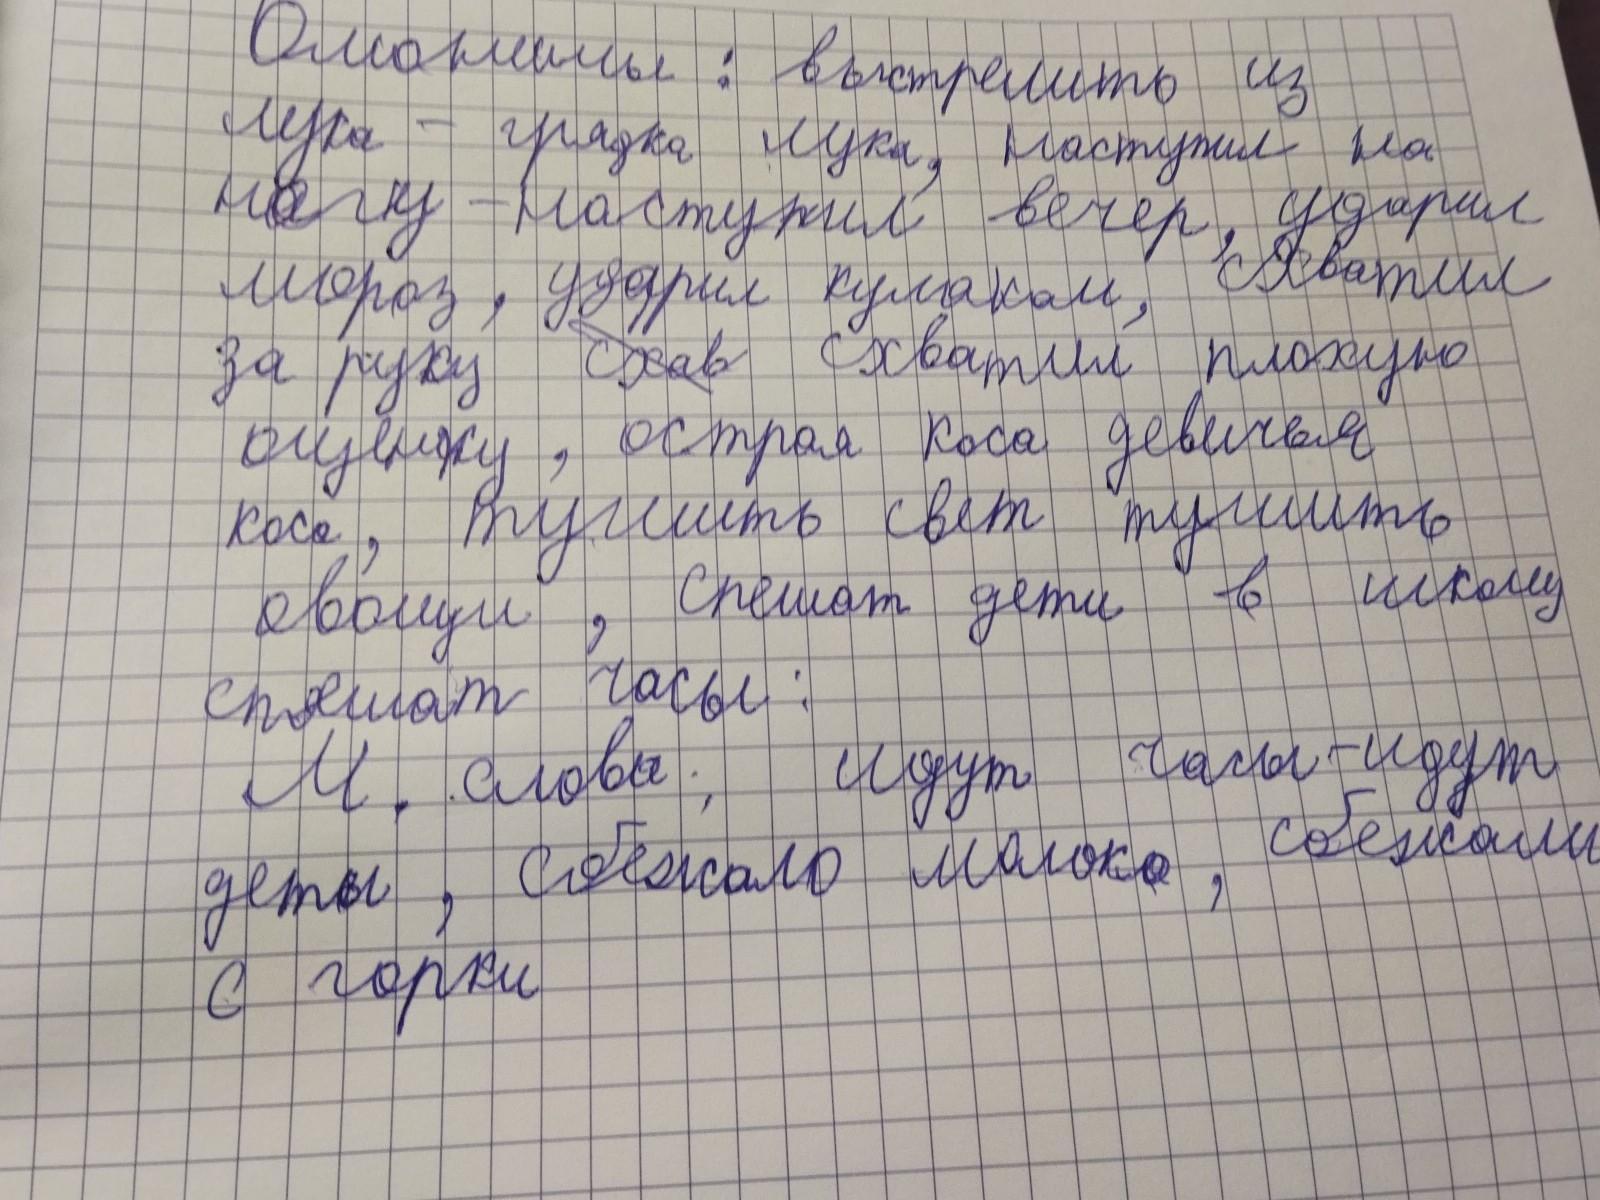 Омонимы: выстрелить из
лука - грядка лука, наступил на
ногу - наступил вечер, ударил
мороз, ударил кулаком, схватил
за руку схав схватил плохую
оценку, острая коса девичья
коса, тушить свет тушить
овощи, спешат дети в школу
спешат часы:
М. слова: идут часы - идут
дети, сбежало молоко, сбежали
с горки